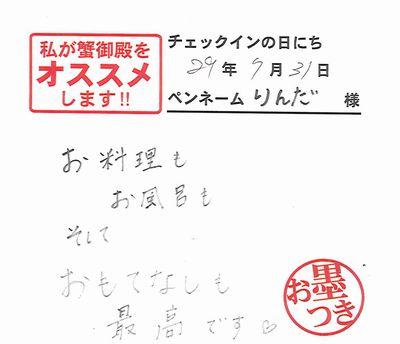 私が蟹御殿を
オススメ
します!!
チェックインの日にち
29年7月31日
ペンネーム りんだ 様
お料理も
お風呂も
そして
おもてなしも
最高です♡
お墨つき